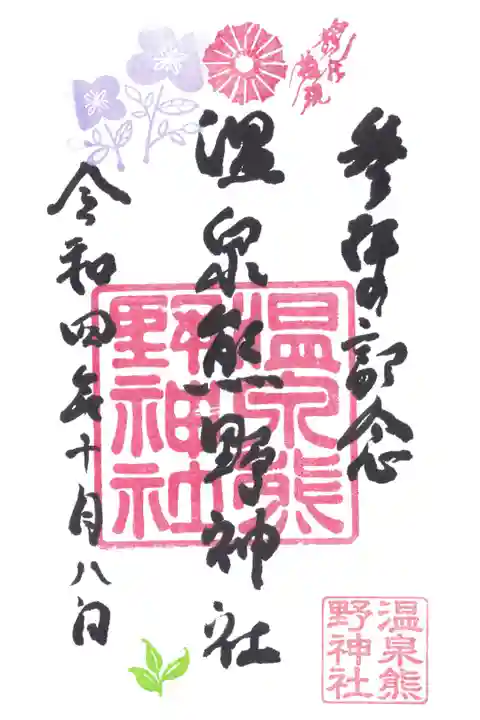 参拝の記念
温泉熊野神社
令和四年十月八日
温泉熊
野神社
温泉熊
野神社